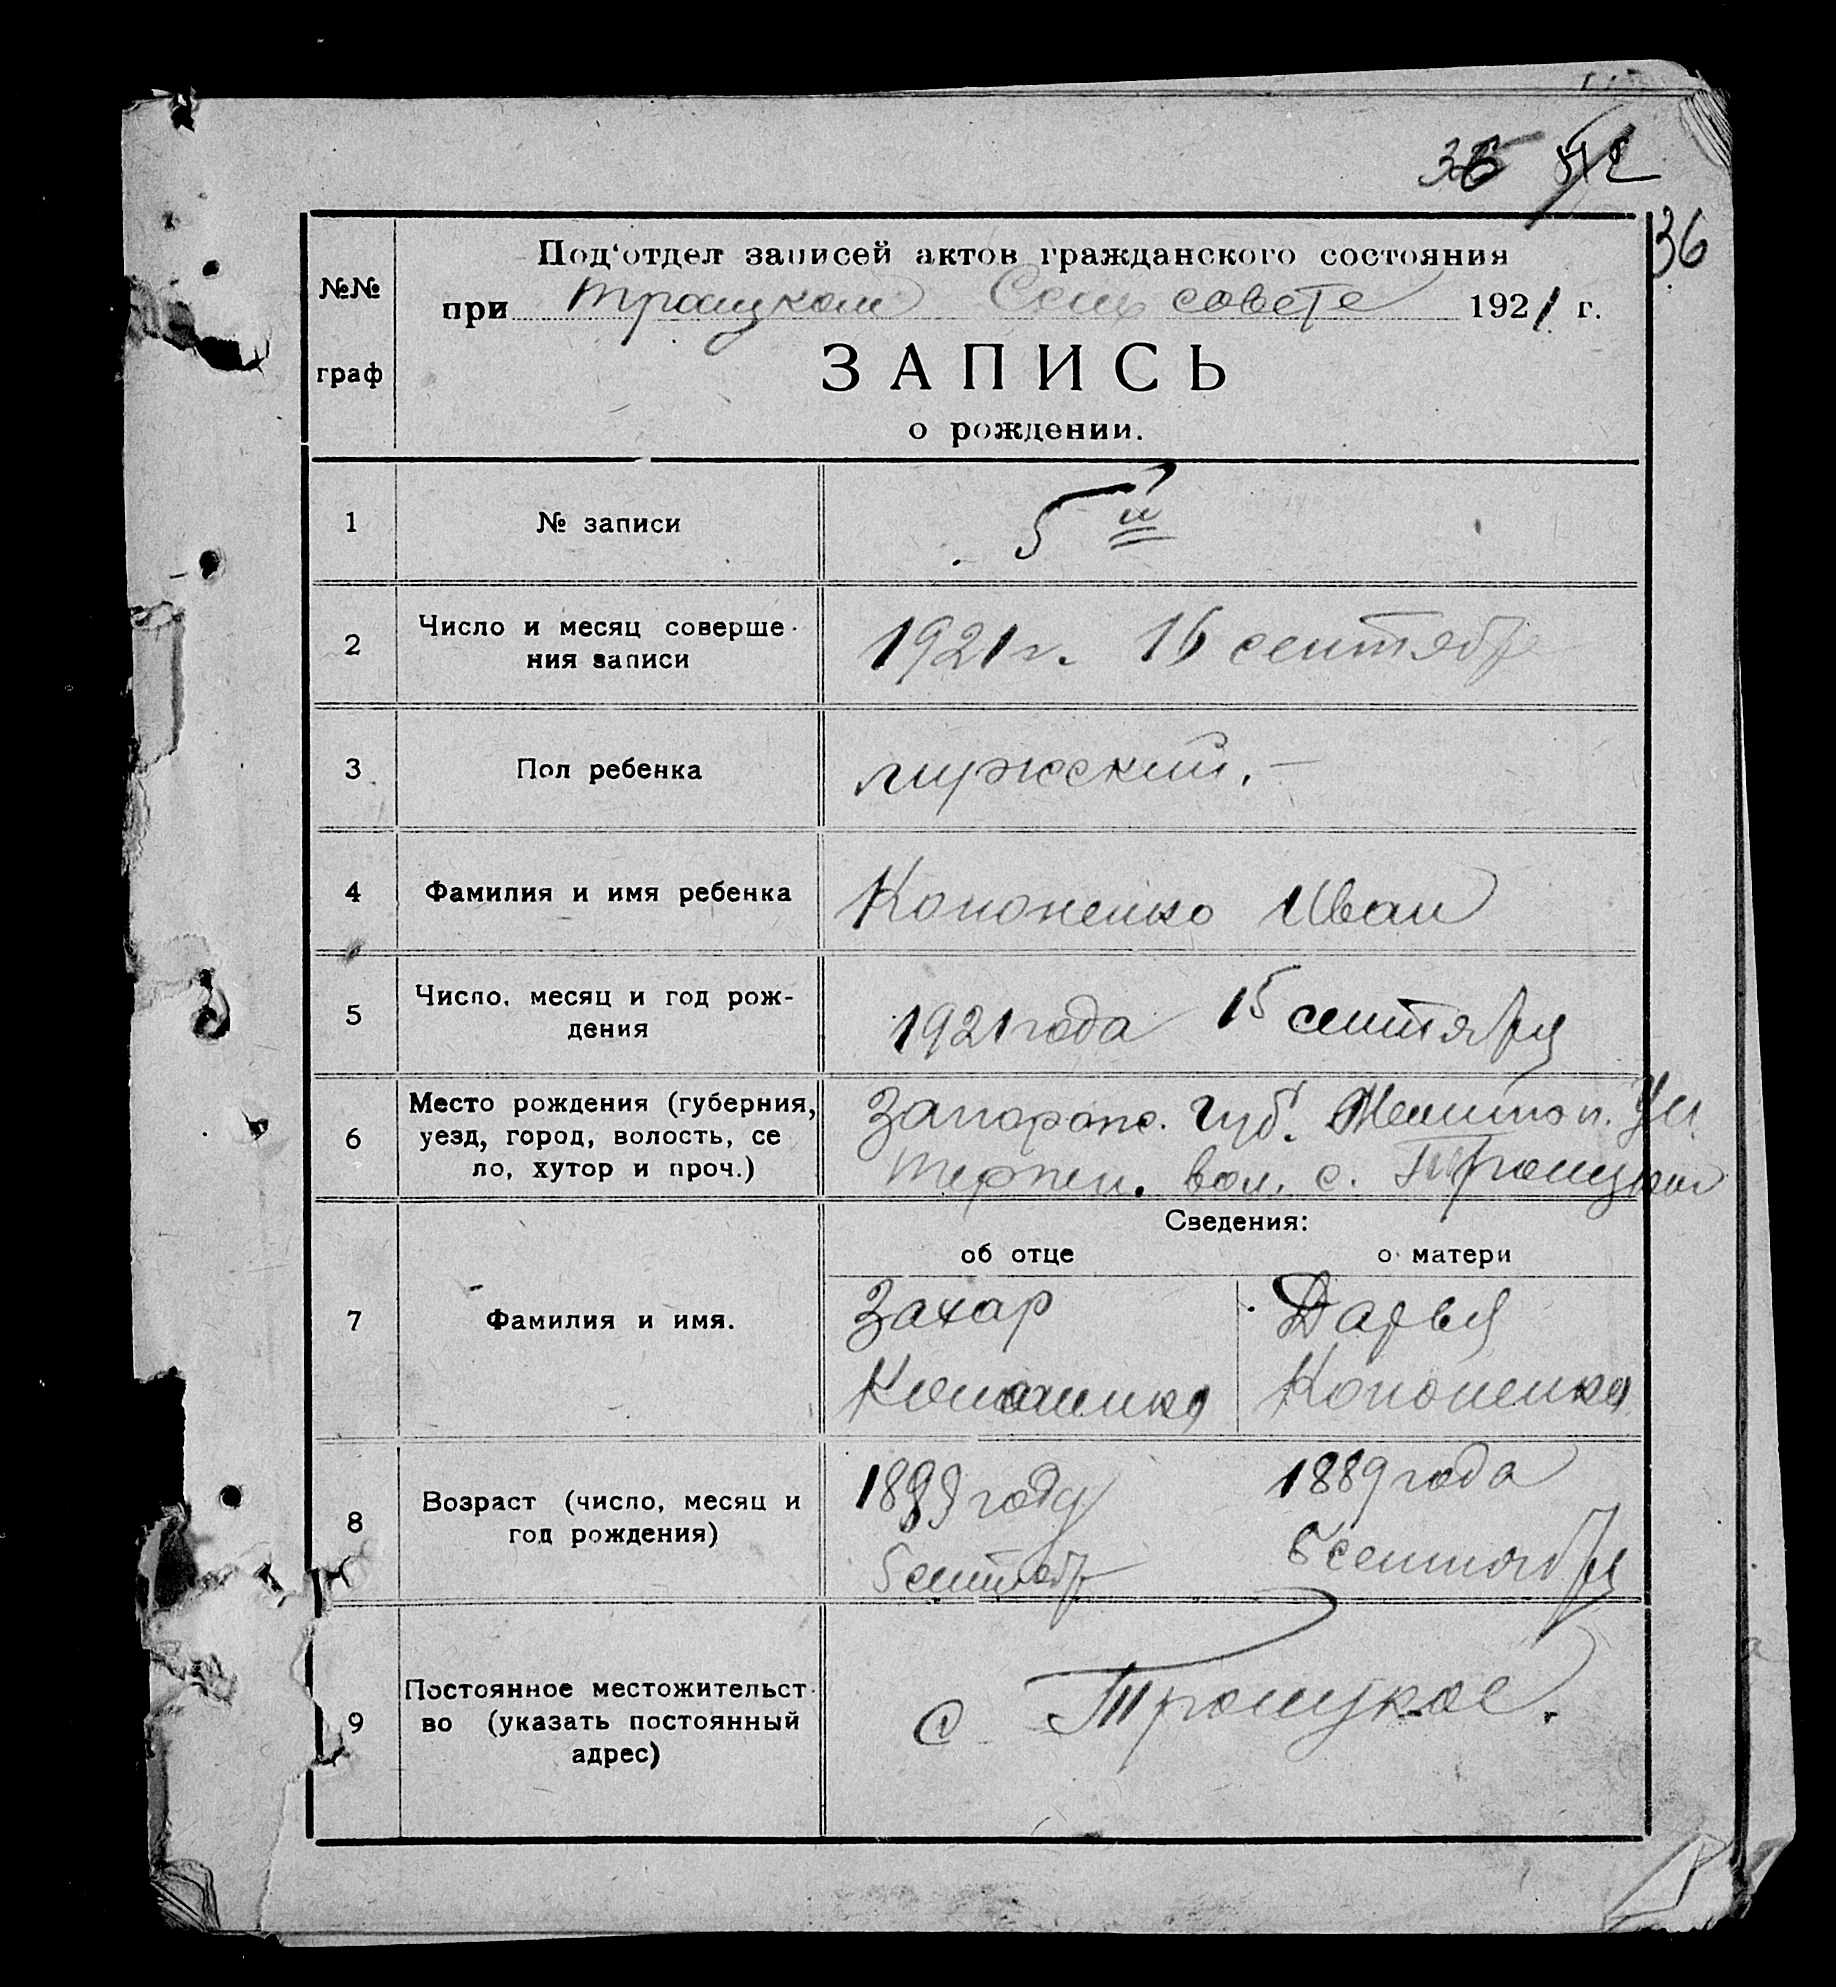 36
36
Под'отдел записей актов гражданского состояния
№№ граф
при Троицком Сель совете 1921 г.
ЗАПИСЬ
о рождении.
1 № записи 5й
2 Число и месяц соверше-
ния записи
1921 г. 16 сентябр
3 Пол ребенка мужской.
4 Фамилия и имя ребенка Кононенко Иван
5 Число, месяц и год рож-
дения
1921 года 15 сентября
6 Место рождения (губерния,
уезд, город, волость, се
ло, хутор и проч.)
Запорож. Губ. Мелитоп. Уез
Терпен. вол. с. Троицком
Сведения:
об отце о матери
7 Фамилия и имя.
Захар Дарья
Кононенко Кононенко
8 Возраст (число, месяц и
год рождения)
году 1889 года
5 сентябр сентября
9 Постоянное местожительст-
во (указать постоянный
адрес)
с Троицкое.